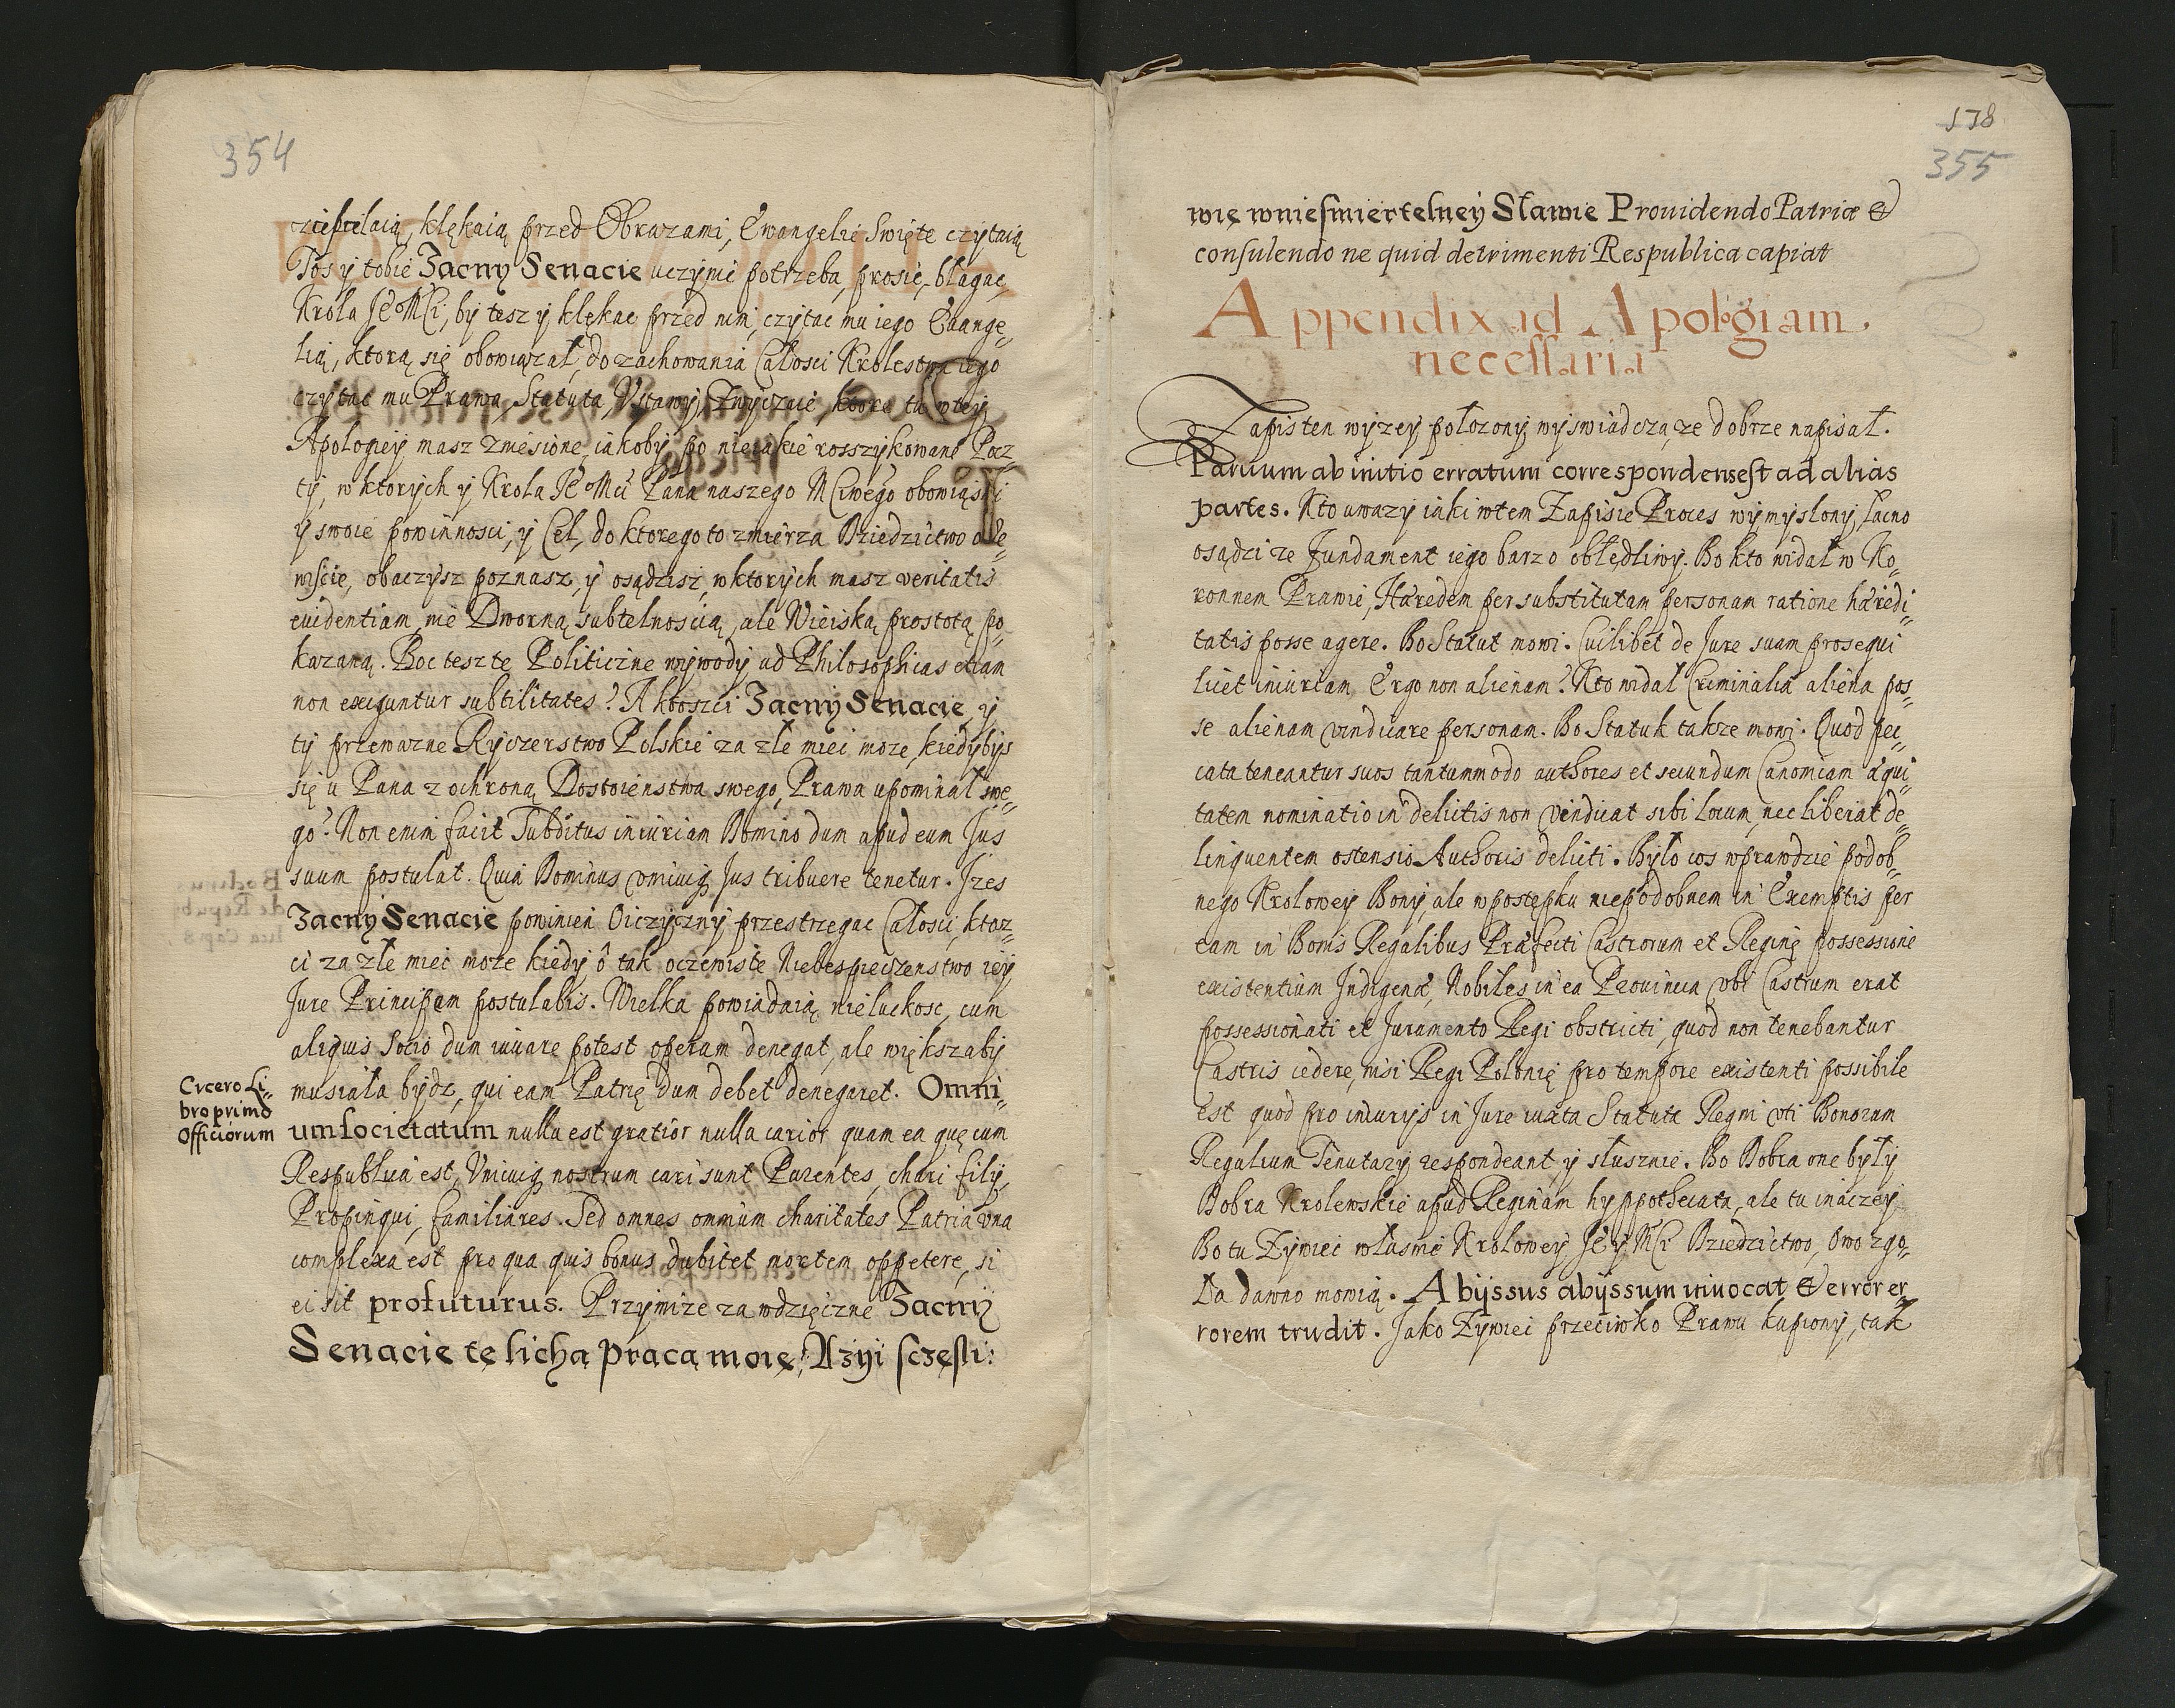 354
zcielaią, klękaią przed Obrazami, Ewangelie Swięte czytaią
Tos y tobie Zacny Senacie uczynić potrzeba, prosić, błagać,
Krola Jė Mći, by tesz y klękac przed nim, czytac mu iego Euange„
lią, ktorą się obowiązał, do zachowania Całosci Krolestwa iego
czytac mu Prawa, Statuta, Ustawy, Zwyczaie, ktore tu wtey
Apologiey masz zniesione, iakoby po nieiakie rosszykowane Pocz„
ty, w ktorych y Krola Jė Mći Pana naszego Mćiwego obowiąski
y swoie powinnosci, y Cel, do ktorego to zmierza Dziedzictwo
wiscie, obaczysz poznasz, y osądzisz, w ktorych masz veritatis
euidentiam, nie Dworną subtelnoscią, ale Wieiską prostotą po„
kazaną. Boc tesz te Politiczne wywody ad Philosophicas etiam
non exiguntur subtilitates? A ktoszci Zacny Senacie, y
ty przewazne Rycerstwo Polskie za złe mieć moze, kiedybys
się u Pana z ochroną Dostoienstwa swego, Prawa upominał swe„
go? Non enim facit Subditus iniuriam Domino dum apud eum Jus
suum postulat. Quia Dominus vnicuiq; Jus tribuere tenetur. Jzes
Zacny Senacie powinien Oiczyzny przestrzegac Całosci, ktoz„
ci za złe mieć moze kiedy ô tak oczewiste Niebespieczenstwo iey
Jure Principem postulabis. Wielka powiadaią nieluckosc, cum
aliquis Socio dum iuuare potest operam denegat, ale większaby
musiała bydz, qui eam Patrię dum debet denegaret. Omni„
Cycero Li„
bro primo
Officiorum
um societatum nulla est gratior nulla carior quam ea quę cum
Respublica est, Vnicuiq; nostrum cari sunt Parentes, chari filij,
Propinqui, familiares. Sed omnes omnium charitates Patria vna
complexa est pro qua quis bonus dubitet mortem oppetere, si
ei sit profuturus. Przymize za wdzięczne Zacny
Senacie tę lichą pracą moię, Azyi sczęsli:
178
355
wię wniesmiertelney Sławie Prouidendo Patriæ &
consulendo ne quid detrimenti Respublica capiat
Appendix ad Apologiam
necessaria
Zapis ten wyzey połozony wyswiadcza, ze dobrze napisał.
Paruum ab initio erratum correspondens est ad alias
partes. Kto uwazy iaki wtem Zapisie Proces wymyslony, łacno
osądzi ze Fundament iego barzo obłędliwy. Bo kto widał w Ko„
ronnem Prawie, Hæredem per substitutam personam ratione hæredi„
tatis posse agere. Bo Statut mowi. Cuilibet de Jure suam prosequi
licet iniuriam, Ergo non alienam? Kto widał Criminalia aliena pos„
se alienam vindicare personam. Bo Statut takze mowi. Quod pec„
cata teneantur suos tantummodo authores et secundum Canonicam æqui„
tatem nominatio in delictis non vendicat sibi locum, nec liberat de„
linquentem ostensio Authoris delicti. Było cos wprawdzie podob„
nego Krolowey Bony, ale w postępku niepodobnem in Exemptis per
eam in Bonis Regalibus Præfecti Castrorum et Reginę possessione
existentium Indigenæ, Nobiles in ea Prouincia vbi Castrum erat
possessionati et Juramento Regi obstricti, quod non tenebantur
Castris cedere, nisi Regi Polonię pro tempore existenti possibile
est quod pro iniurijs in Jure iuxta Statuta Regni vti Bonorum
Regalium Tenutarij respondeant y słusznie. Bo Dobra one były
Dobra Krolewskie apud Reginam hyppothecata, ale tu inaczey
Bo tu Zywiec własnie Krolowey Jėy Mći Dziedzictwo, Owo zgo„
ła dawno mowią. Abyssus abyssum inuocat & error er„
rorem trudit. Jako Zywiec przeciwko Prawu kupiony, tak